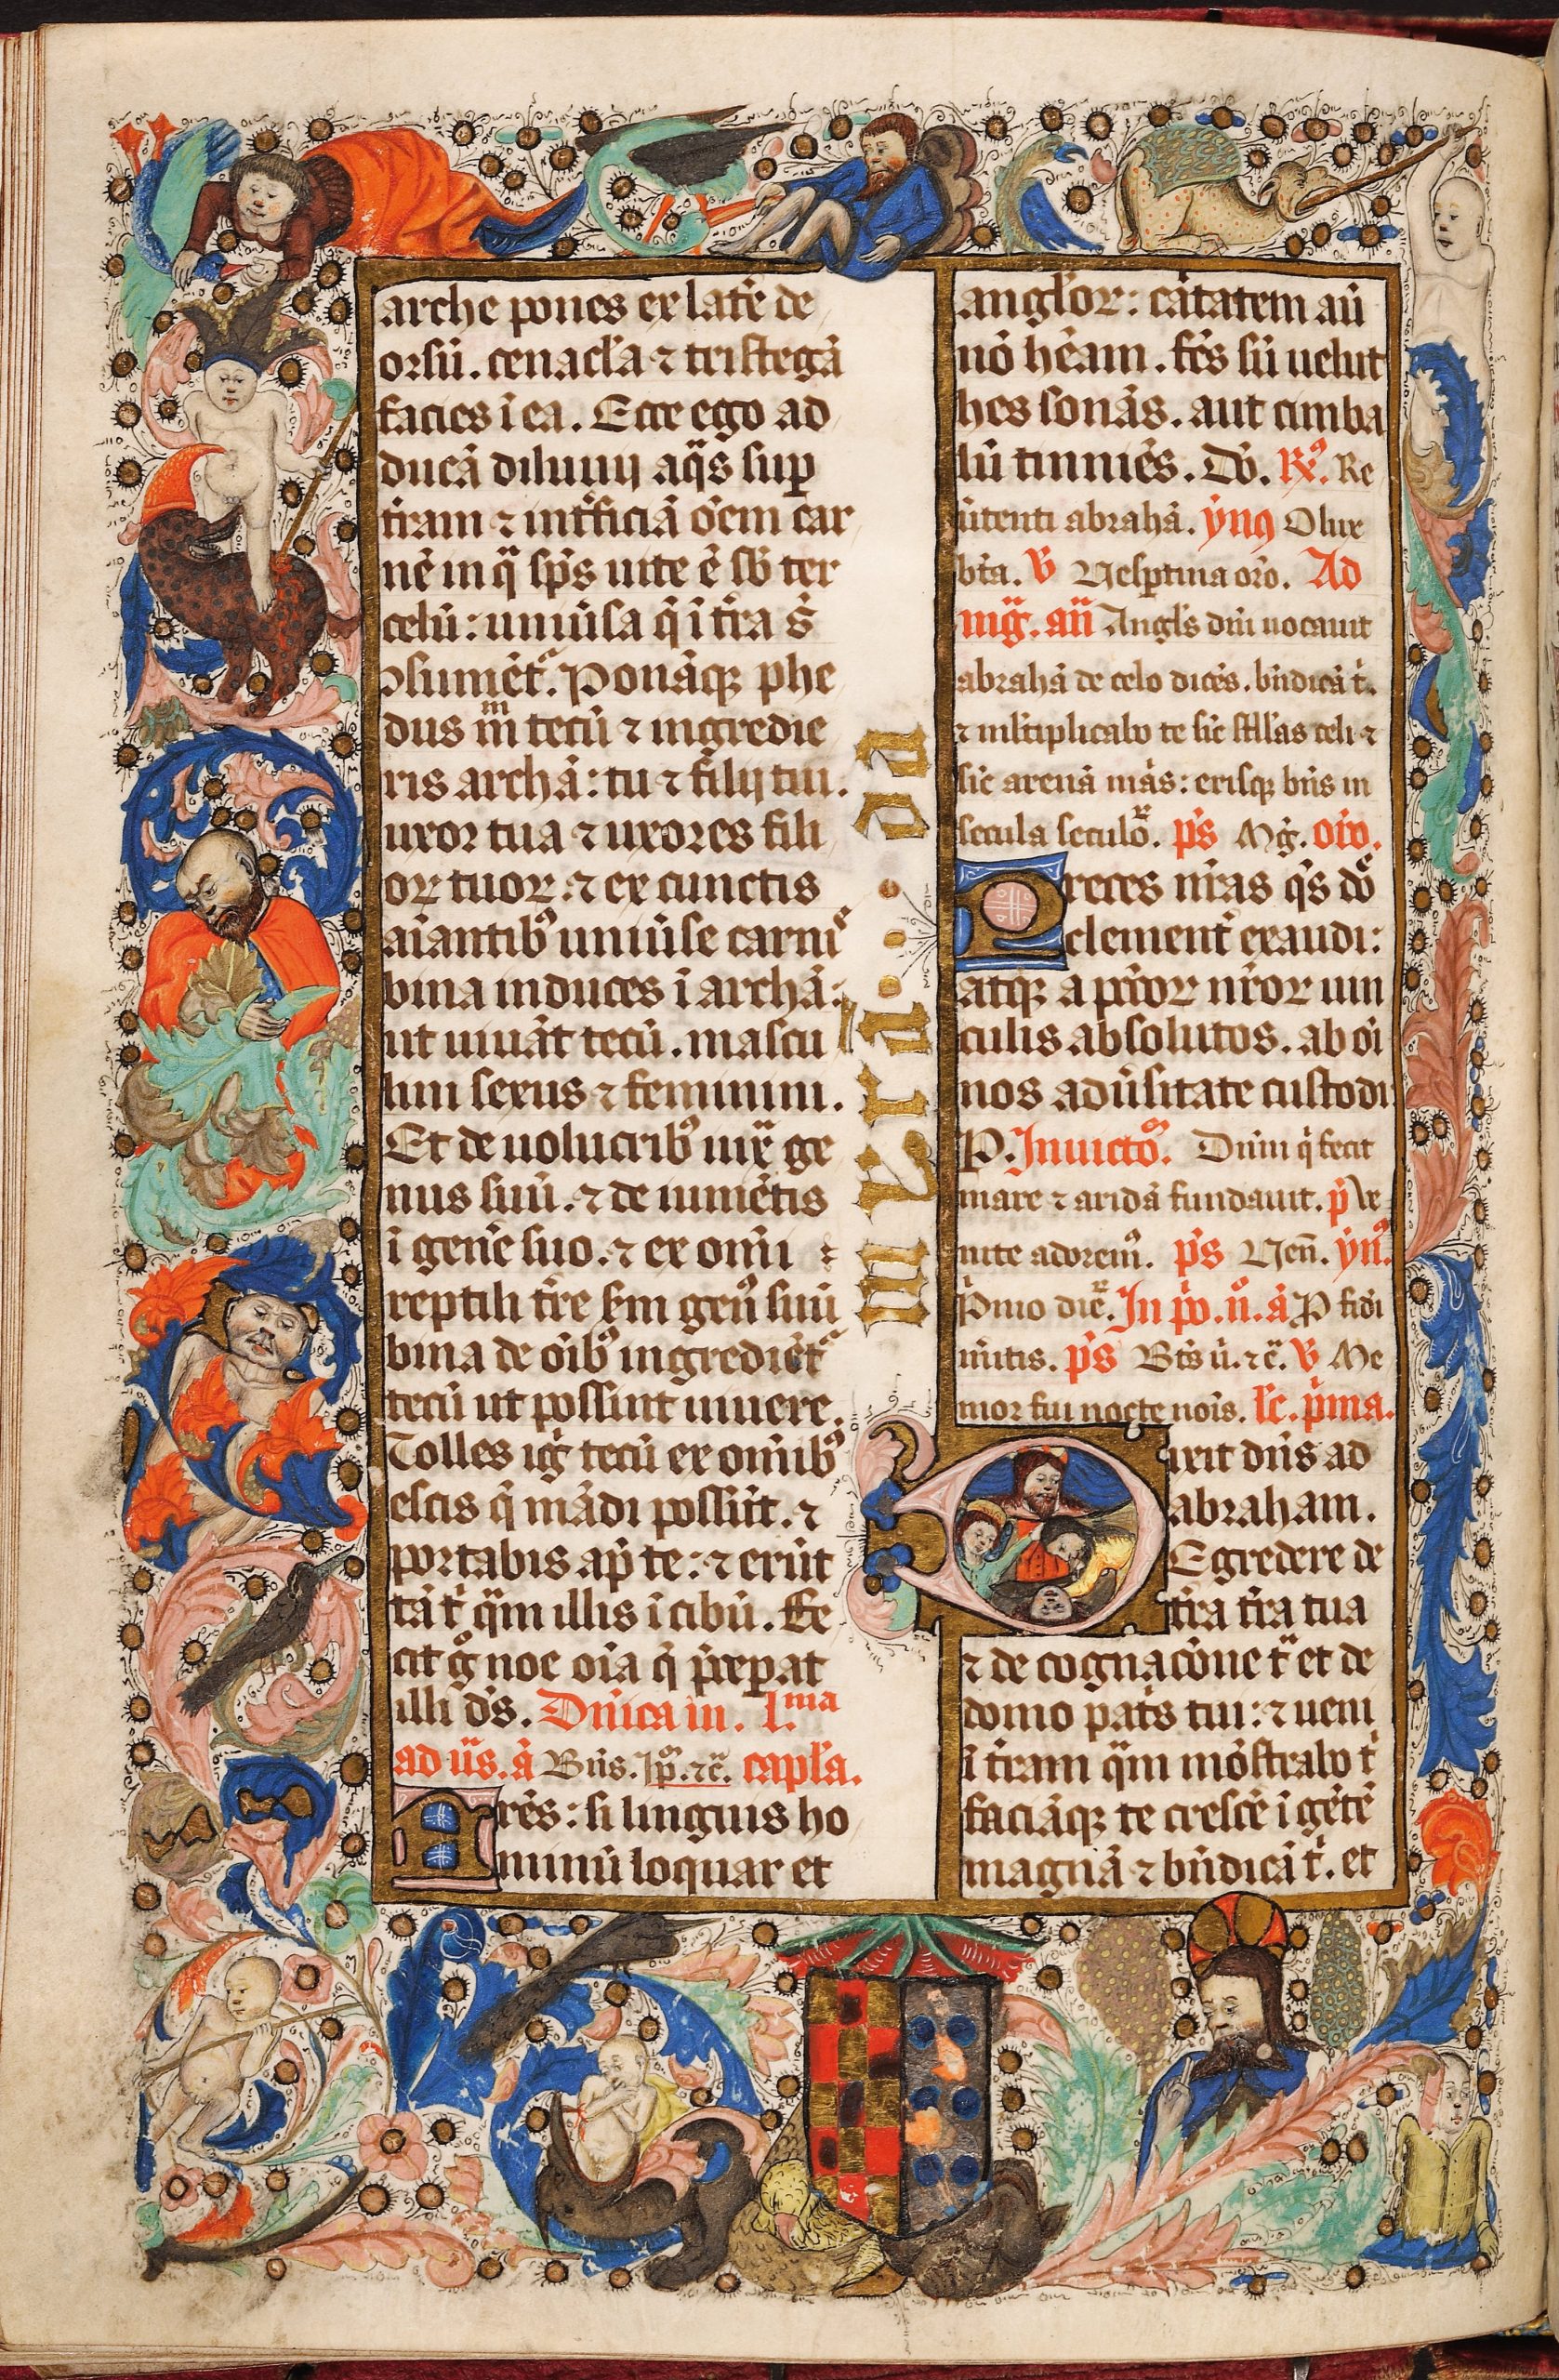 arche pones ex lat̄e de
orsū. cenacl'a ⁊ tristegā
facies ī ea. Ecce ego ad
ducā diluuij aq̄s sup̱
t̄ram ⁊ int̄ficiā ōem car
nē in q̄ sp̄s uite ē sb̄ ter
celū: uniūsa q̄ ī t̄ra s̄
ↄsumēt̄. Ponāq; phe
dus m̄ tecū ⁊ ingredie
ris archā: tu ⁊ filij tui.
uxor tua ⁊ uxores fili
oꝝ tuoꝝ. ⁊ ex cunctis
aīantib᷒ uniūse carni᷒
bina induces ī archā:
ut uiuāt tecū. mascu
lini sexus ⁊ feminini.
Et de uolucrib᷒ iux̄ ge
nus suū. ⁊ de iumētis
ī gen̄e suo. ⁊ ex om̄i
reptili t̄re s̄m gen᷒ suū
bina de oīb᷒ ingrediēt̄
tecū ut possint uiuere.
Tolles iḡ tecū ex om̄ib᷒
escis q̄ mādi possūt. ⁊
portabis ap̄ te: ⁊ erūt
tā t̄ q̄m illis ī cibū. Fe
cit g̊ noe oīa q̄ p̄cep̱at
illi d̄s. Dn̄ica in. l.ᵐᵃ
ad ūs. ā Bn̄s. Ip̄. ⁊c̄. capl'a.
Frēs: si linguis ho
minū loquar et
angl'oꝝ: cātatem aū
nō hēam. fēs sū uelut
hes sonās. aut cimba
lū tinniēs. Dō. ℟. Re
ūtenti abrahā. ẏnꝯ O lux
bt̄a. ℣ Vesp̱tina or̄o. Ad
mḡ. an̄ Angl's dn̄i uocauit
abrahā de celo dicēs. bn̄dicā t̄.
⁊ ml'tiplicabo te sic̄ stl'as celi ⁊
sic̄ arenā mās: erisq; bn̄s in
secula seculoꝝ. p̄s Mḡ. or̄o.
Preces nr̄as q̄s dō
clement̄ exaudi:
atq; a p̄coꝝ nr̄oꝝ uin
culis absolutos. ab oī
nos adūsitate custodi
P. Inuicto᷒. Dn̄m q̄ fecit
mare ⁊ aridā fundauit. p̄ Ve
nite adorem᷒. p̄s Ven̄. ẏn᷒.
P̄mo diē. In p̊. n̊. ā P fidei
m̄itis. p̄s Bt̄s ū. ⁊c̄. ℣ Me
mor fui nocte nōis. lc̄. p̄ma.
Dixit dn̄s ad
abraham.
Egredere de
t̄ra t̄ra tua
⁊ de cognacōne t̄ et de
domo pat̄s tui: ⁊ ueni
ī t̄ram q̄m mōstrabo t̄
faciāq; te crescē ī gētē
magnā ⁊ bn̄dicā t̄. et